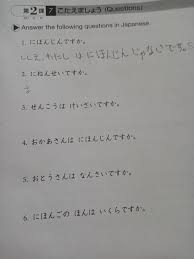 第2課 7 こたえましょう (Questions)
Answer the following questions in Japanese.
1. にほんじんですか。
いいえ、わたし は にほんじん じゃないです。
2. にねんせいですか。
3. せんこうは けいざいですか。
4. おかあさんは にほんじんですか。
5. おとうさんは なんさいですか。
6. にほんごの ほんは いくらですか。